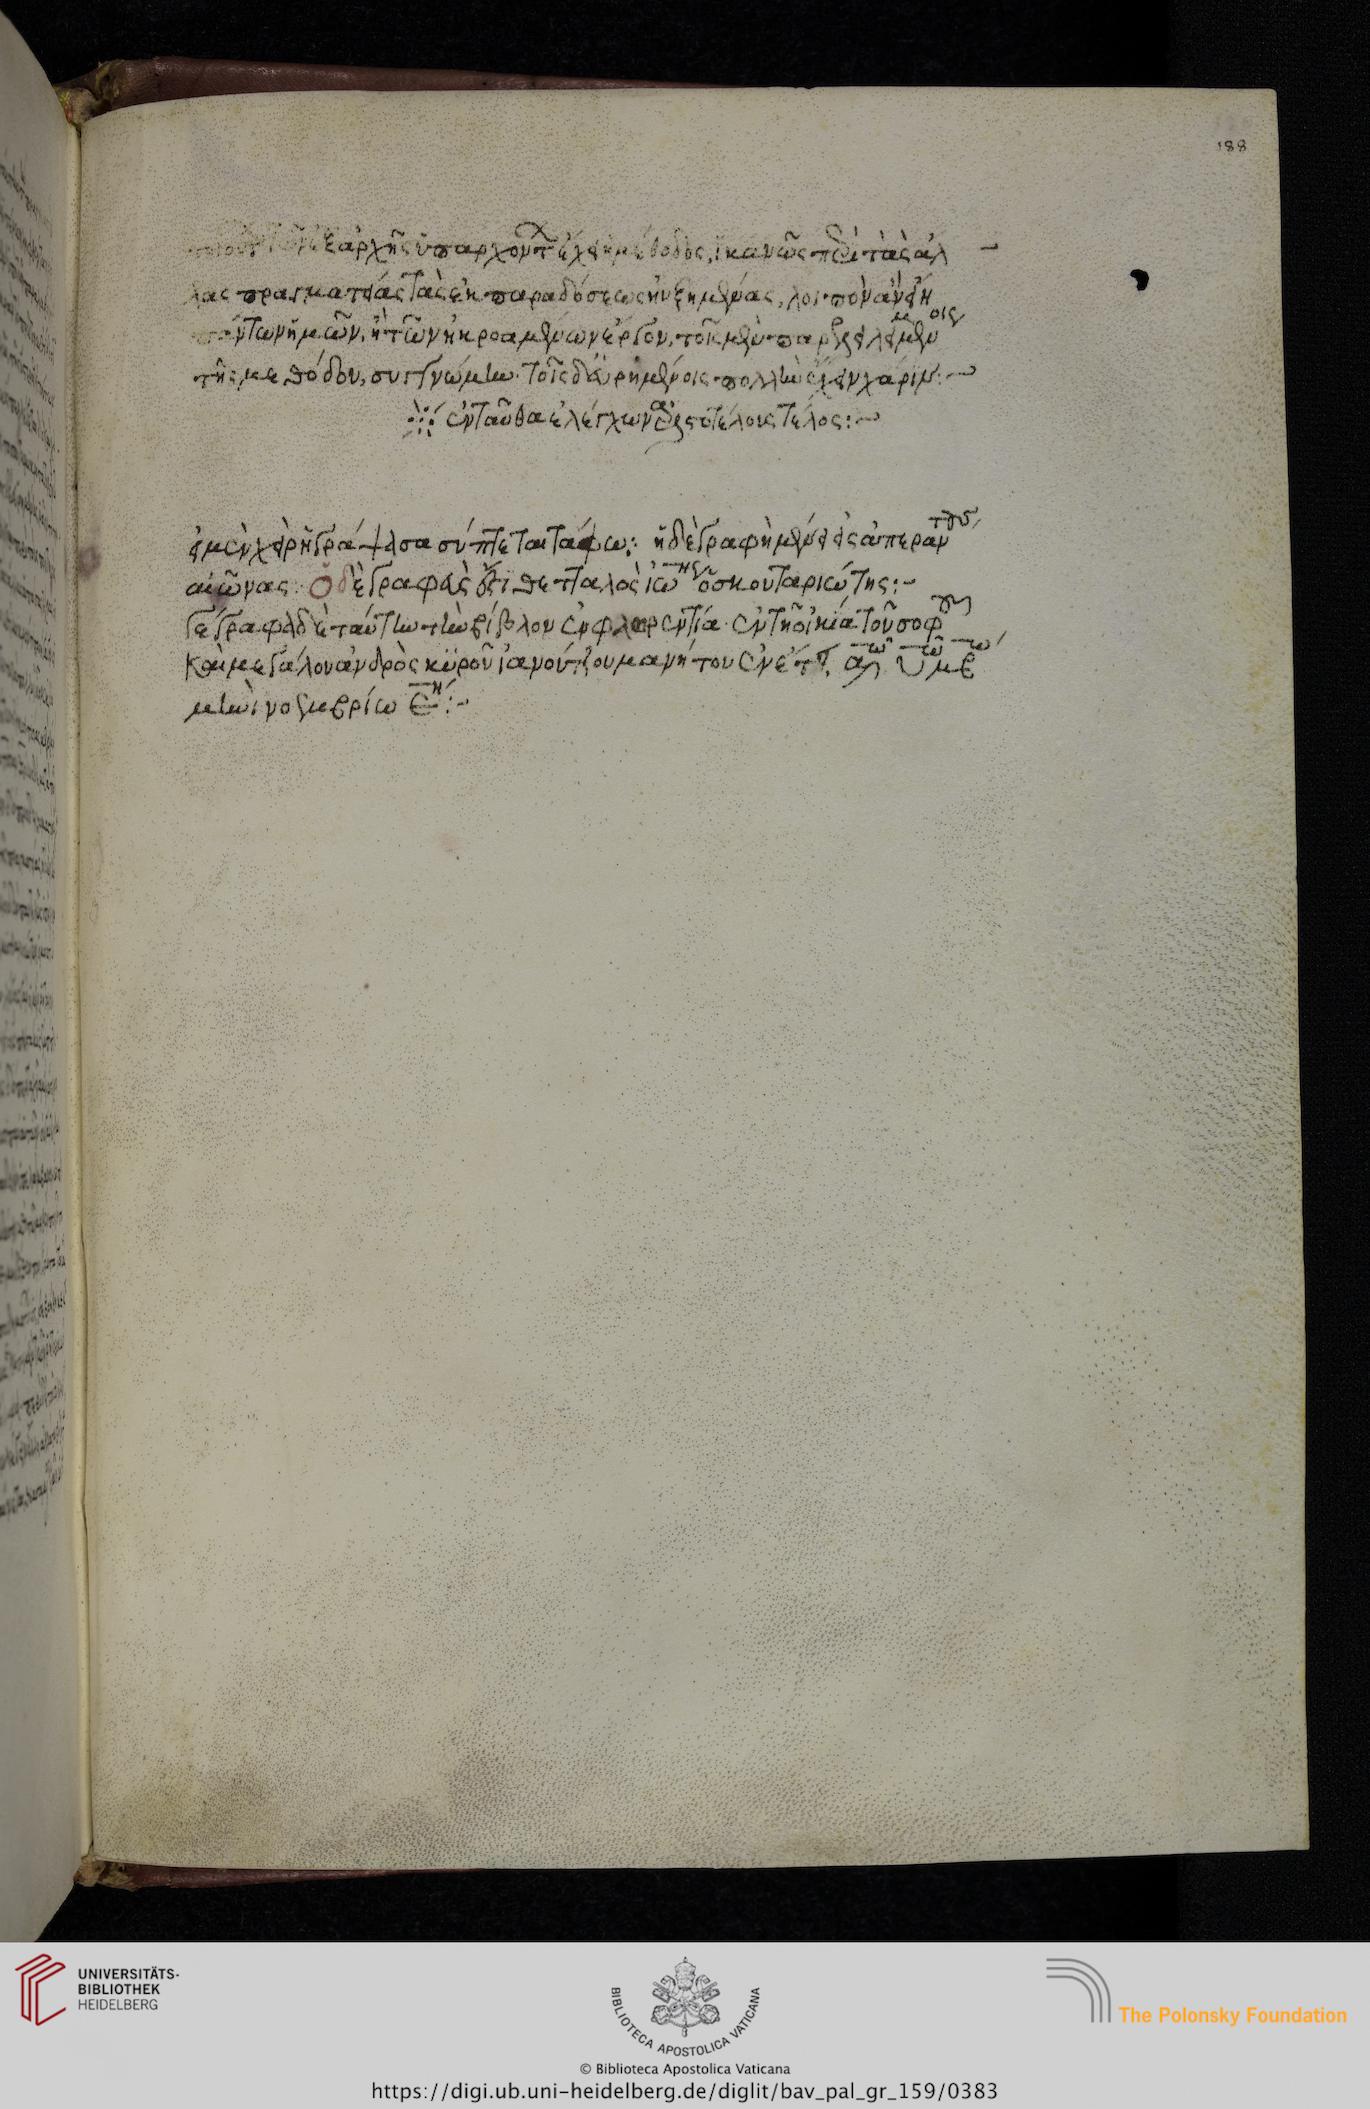 188
ἐξ ἀρχῆς ὑπαρχόντ ἔχειν ἡ μέθοδος, ἱκανῶς παρὰ τὰς ἀλ
λας πραγματείας τὰς ἐκ παραδόσεως ηὐξημένας, λοιπὸν ἂν εἴη
πάντων ἡμῶν, ἢ τῶν ἠκροαμένων ἔργον, τοῖς μὲν παραλελειμμένοις
τῆς μεθόδου, συγγνώμην· τοῖς δ' εὑρημένοις πολλὴν ἔχειν χάριν:
ἐνταῦθα ἐλέγχων ἀριστοτέλοις τέλος:
ἡ μὲν χεὶρ ἡ γράψασα σήπτεται τάφω: ἡ δὲ γραφὴ μένει εἰς ἀπεράντους
αἰῶνας: Ὁ δὲ γραφεὺς ἔτι θετταλὸς ἰωης ὁ σκουταριώτης:
γέγραφε δὲ ταύτην τὴν βίβλον ἐν φλωρεντία· ἐν τῆ οἰκία τοῦ σοφου
καὶ μεγάλου ἀνδρὸς κυροῦ ἰανούτζου μανήτου ἐν ἔτ αω υω μβω
μηνὶ νοεμβρίω εη:
UNIVERSITÄTS-
BIBLIOTHEK
HEIDELBERG
BIBLIOTECA APOSTOLICA VATICANA
The Polonsky Foundation
© Biblioteca Apostolica Vaticana
https://digi.ub.uni-heidelberg.de/diglit/bav_pal_gr_159/0383